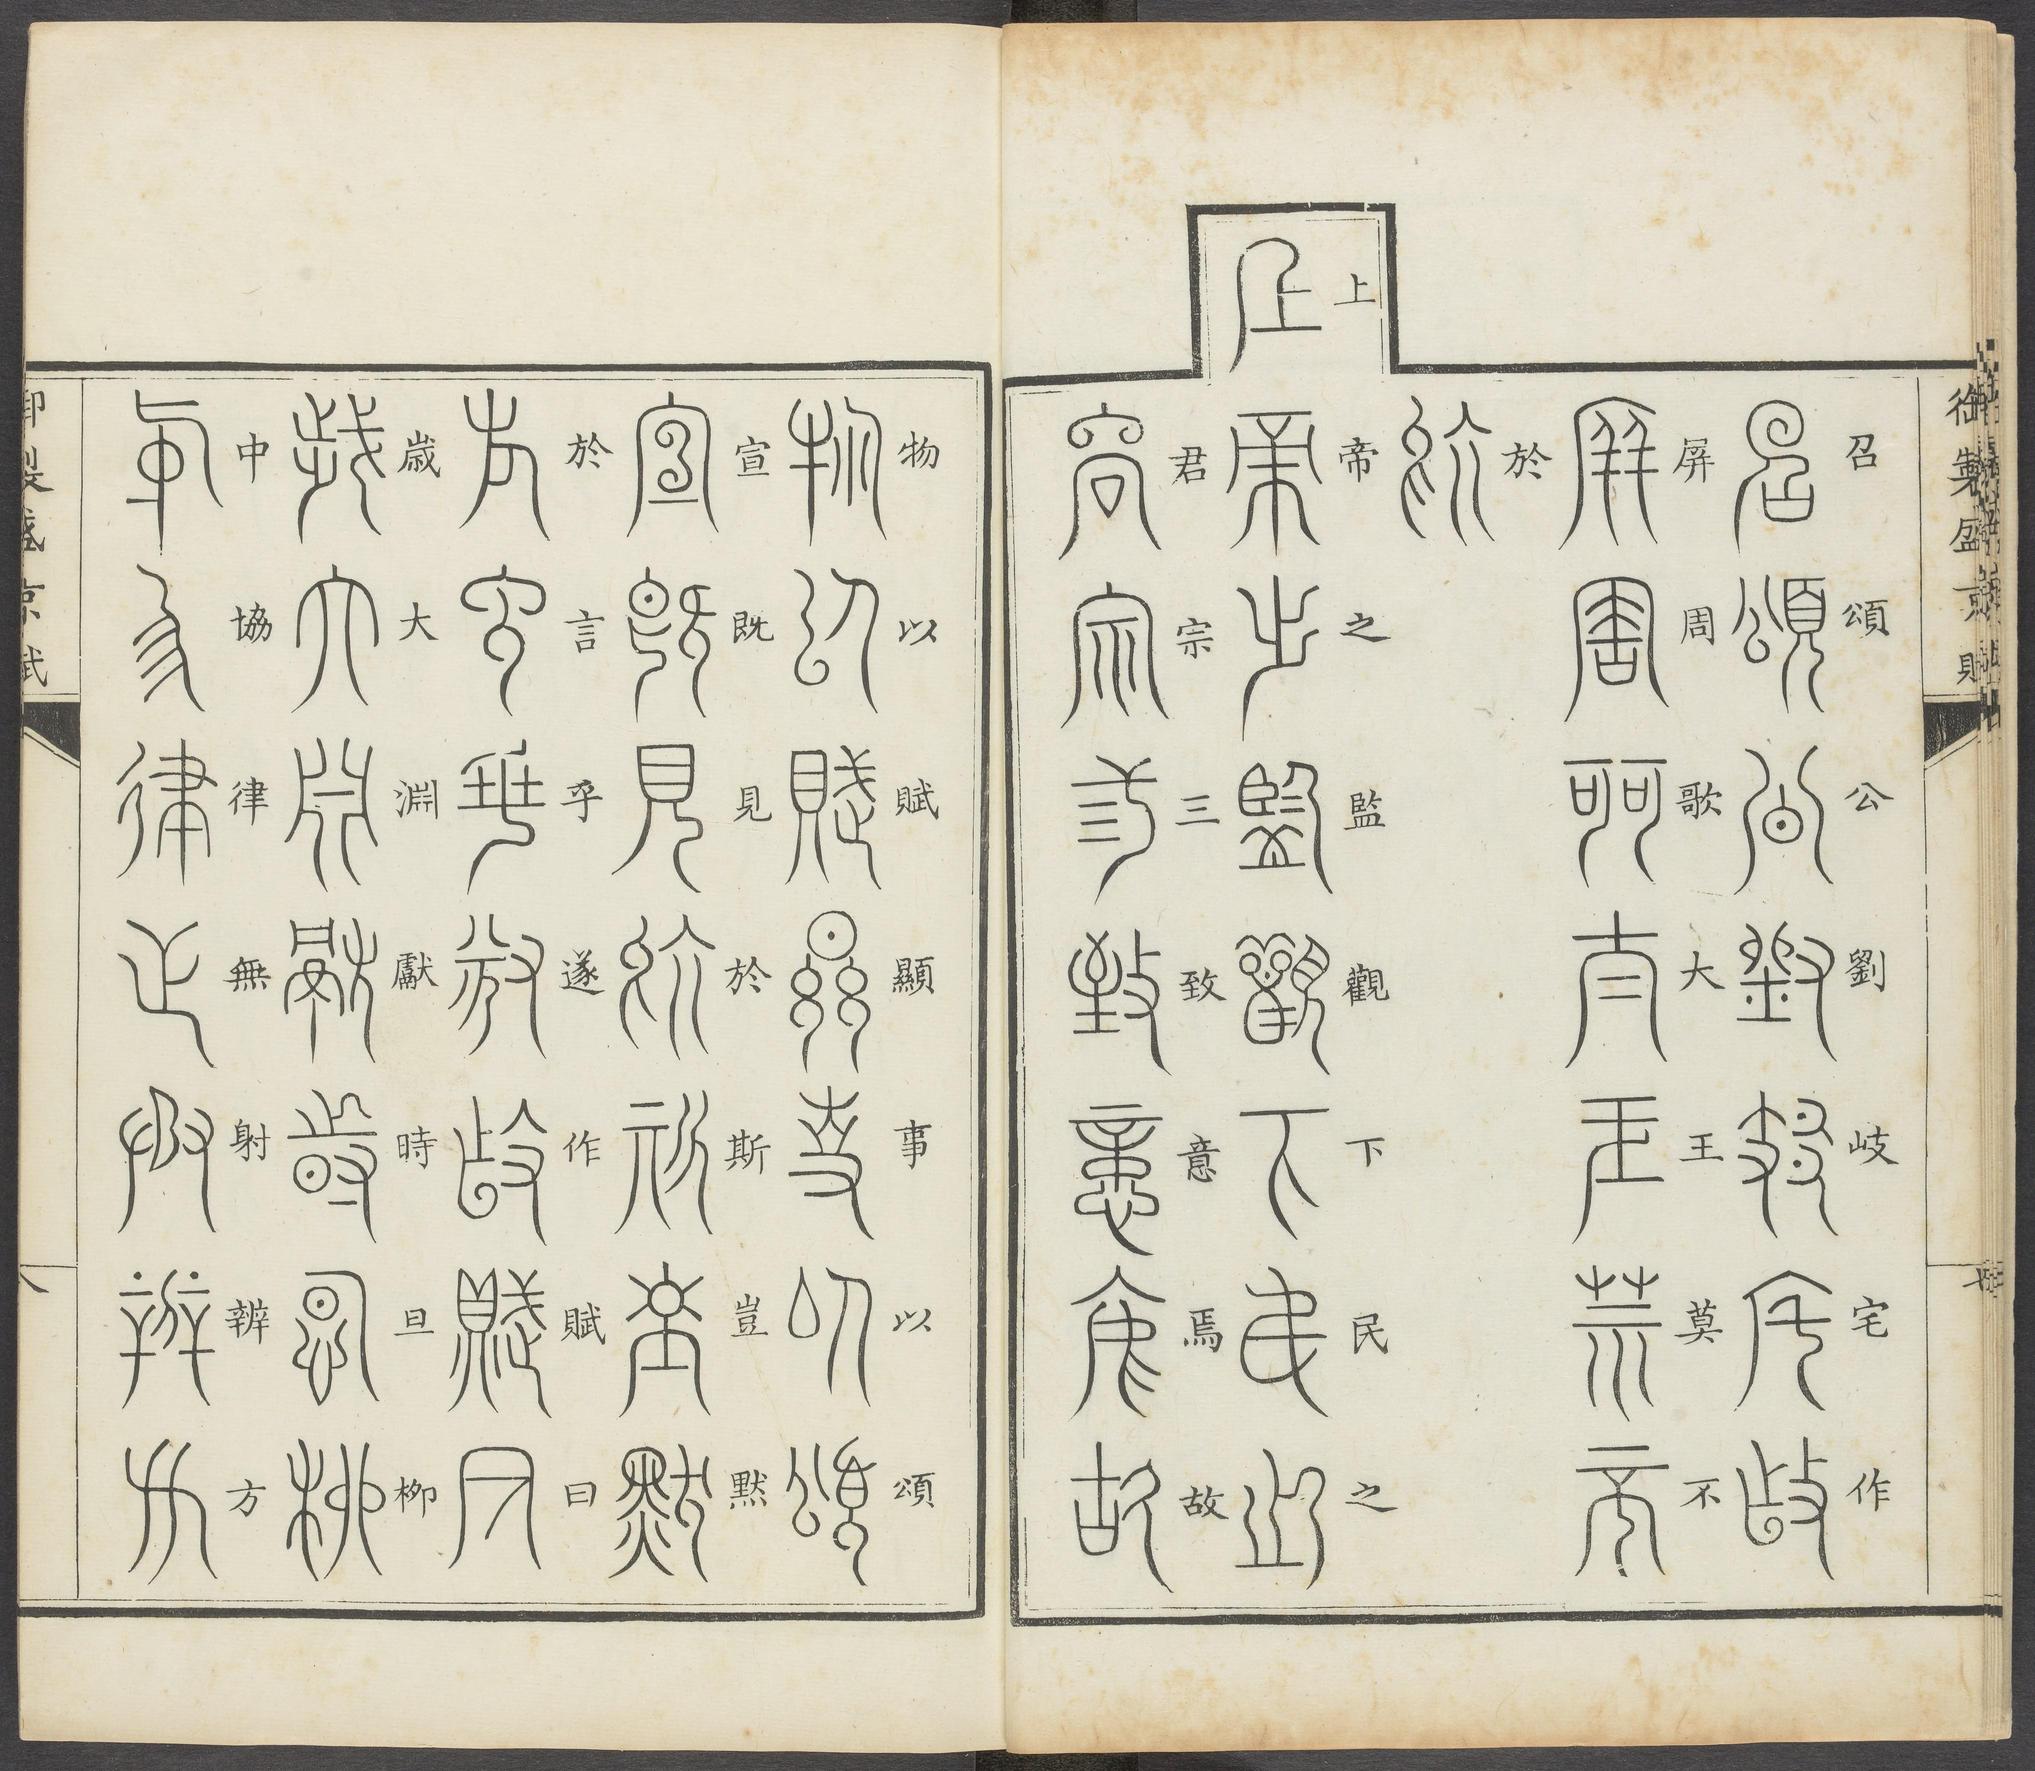 御製盛京賦
召頌公劉岐宅作
屏周歌大王莫不
於
上帝之監觀下民之
君宗三致意焉故
物以賦顯事以頌
宣既見於斯豈默
於言乎遂作賦曰
歲大淵獻時旦柳
中協律無射辨方
御製盛京賦
八